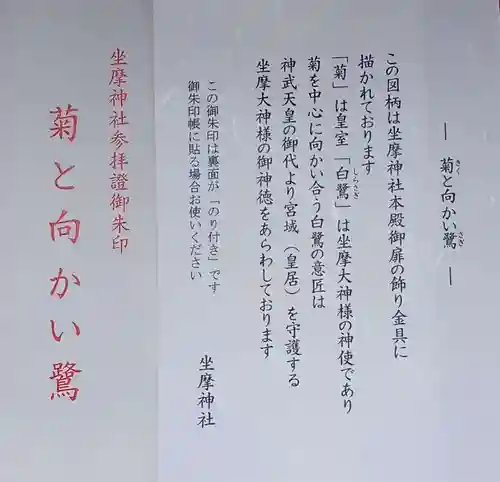 ― 菊と向かい鷺 ―
この図柄は坐摩神社本殿御扉の飾り金具に
描かれております
「菊」は皇室「白鷺」は坐摩大神様の神使であり
菊を中心に向かい合う白鷺の意匠は
神武天皇の御代より宮城(皇居)を守護する
坐摩大神様の御神徳をあらわしております
この御朱印は裏面が「のり付き」です
御朱印帳に貼る場合お使いください
坐摩神社
坐摩神社参拝證御朱印
菊と向かい鷺